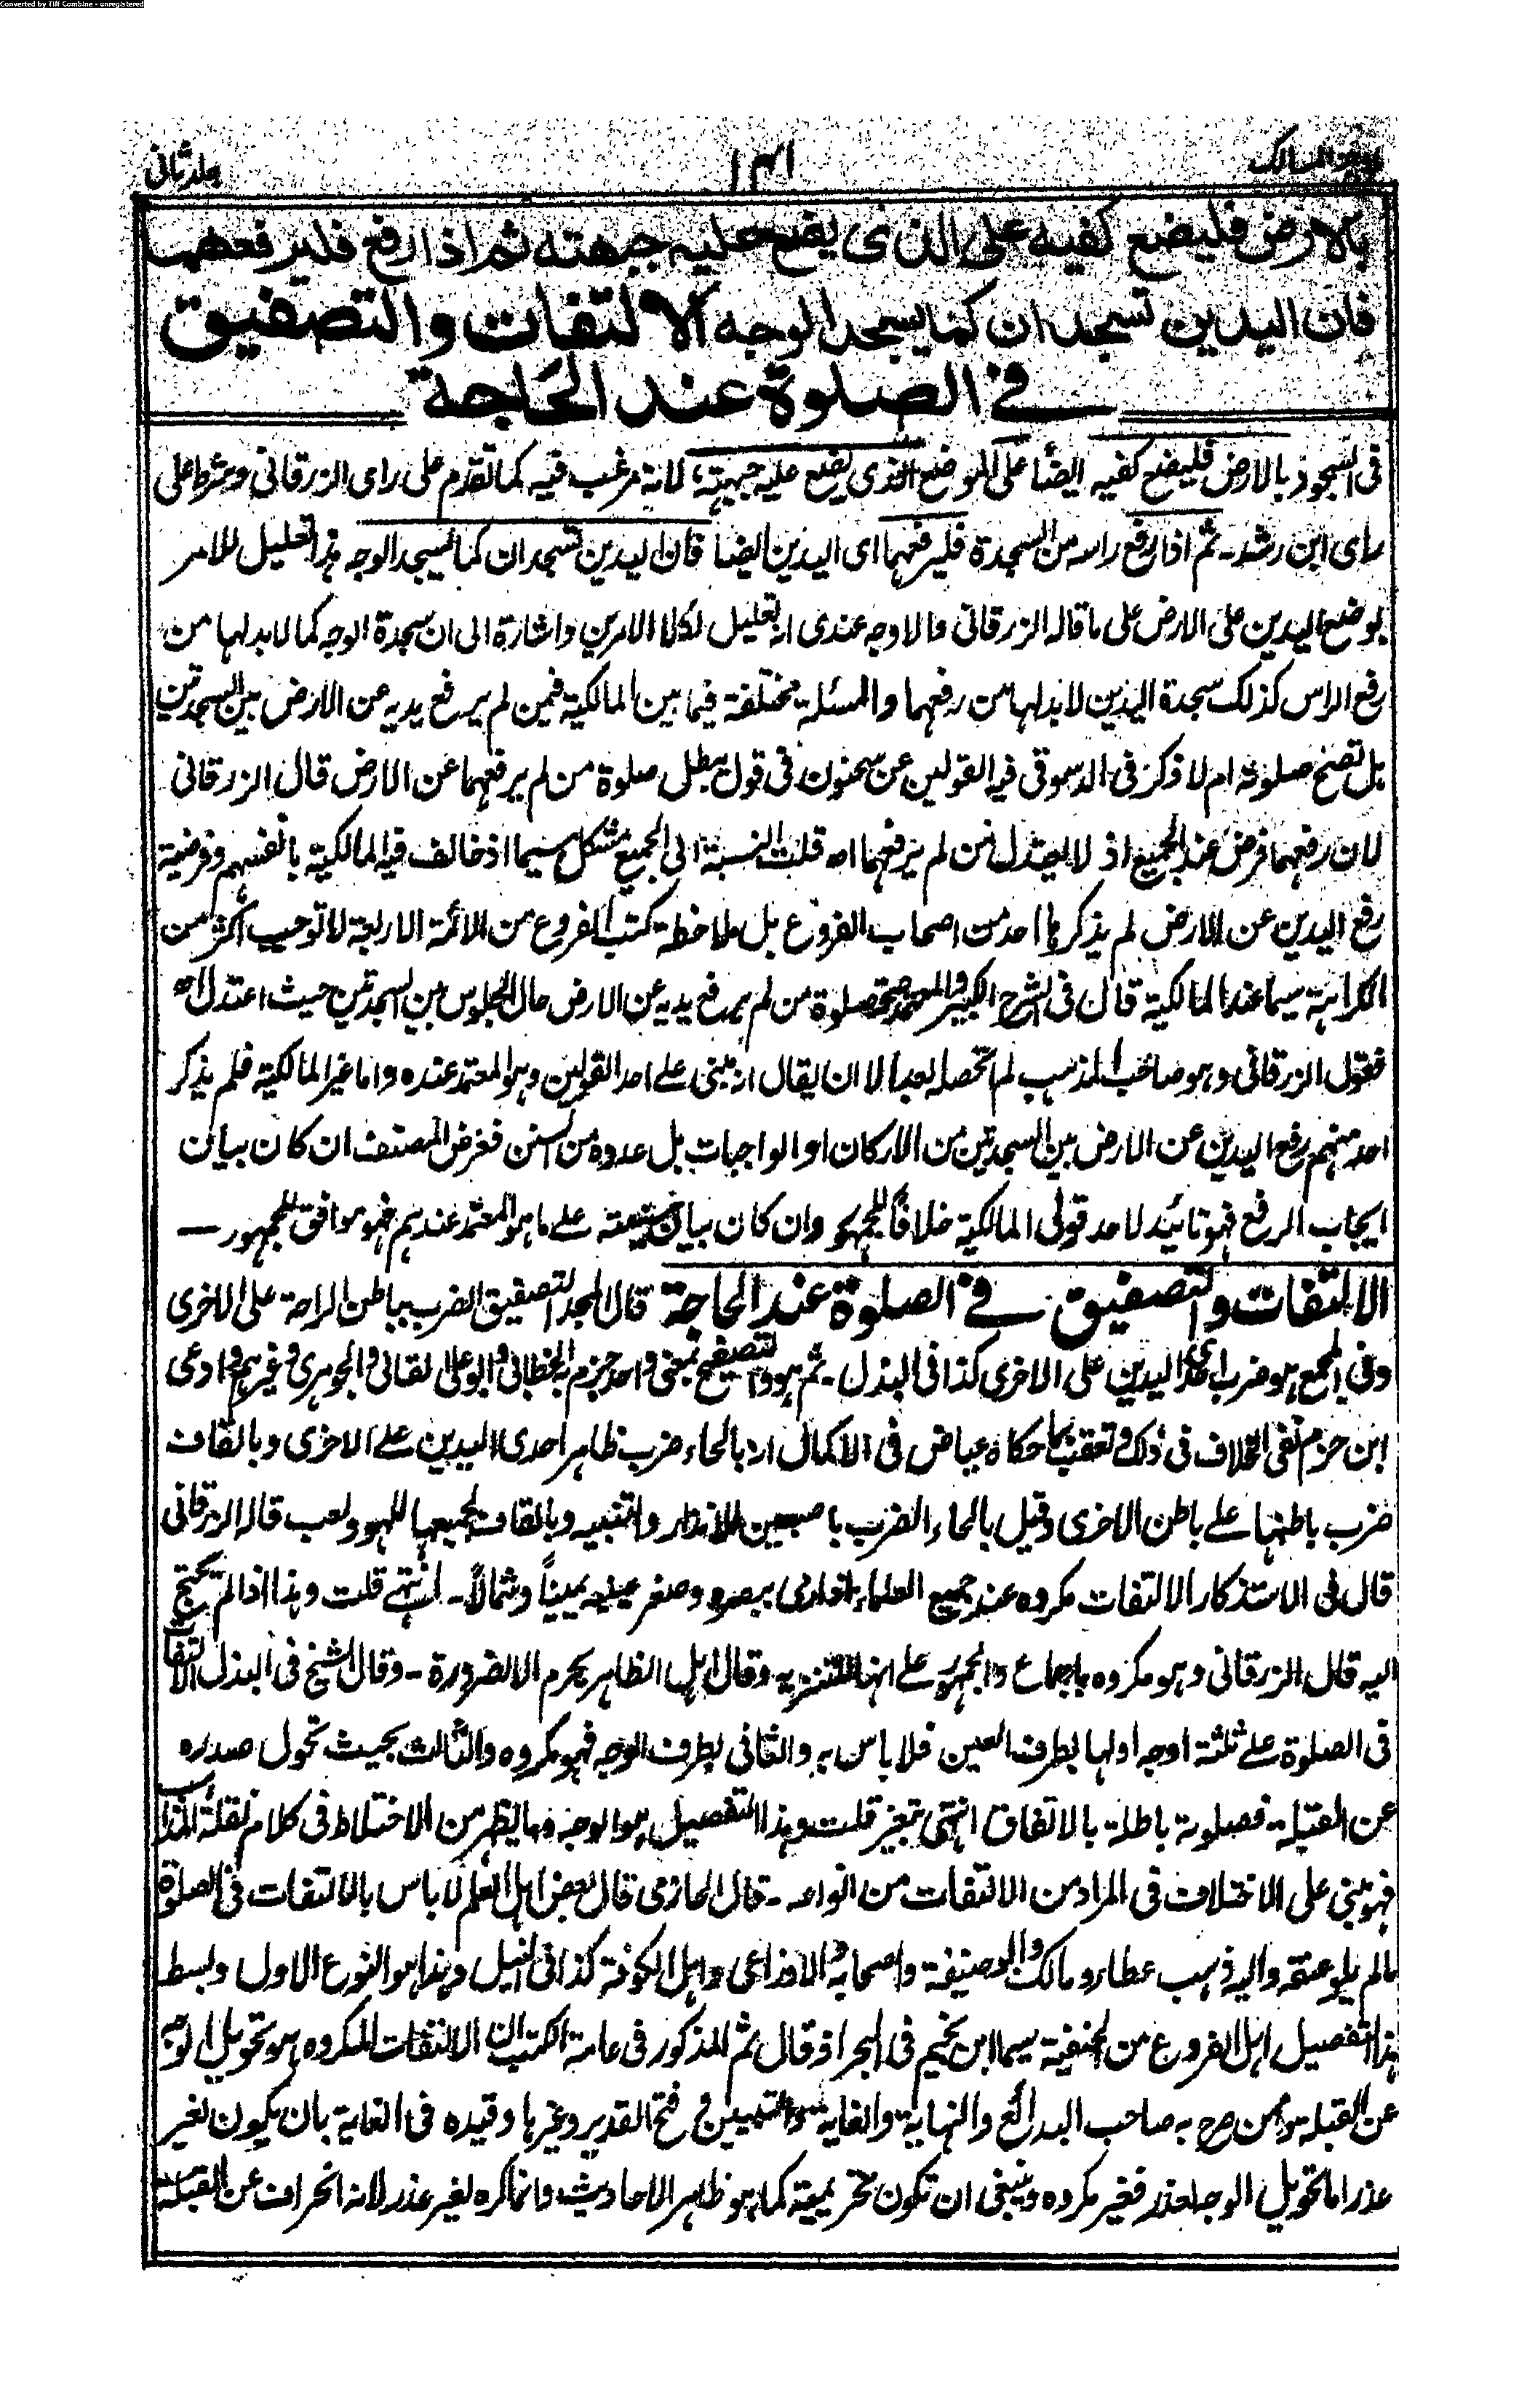 Converted by Tiff Combine - unregistered
اوجز المسالك
جلد ثانی
بالارض فليضع كفيه على الذى يضع عليه جبهته ثم اذا رفع فليرفعهما
فان اليدين تسجدان كما يسجد الوجه الالتفات والتصفيق
فى الصلوة عند الحاجة
فى السجود بالارض فليضع كفيه ايضًا على الموضع الذى يضع عليه جبهته، لانه مرغب فيه كما تقدم على راى الزرقانى وشرط على
راى ابن رشد۔ ثم اذا رفع راسه من السجدة فليرفعهما اى اليدين ايضا فان اليدين تسجدان كما يسجد الوجه هذا تعليل للامر
بوضع اليدين على الارض على ما قاله الزرقانى والاوجه عندى انه تعليل لكلا الامرين واشارة الى ان سجدة الوجه كما لا بد لها من
رفع الراس كذلك سجدة اليدين لا بد لها من رفعهما والمسئلة مختلفة فيما بين المالكية فيمن لم يرفع يديه عن الارض بين السجدتين
هل تصح صلوته ام لا ذكر فى الدسوقى فيه القولين عن سحنون فى قول يبطل صلوة من لم يرفعهما عن الارض قال الزرقانى
لان رفعهما فرض عند الجميع اذ لا يعتدل من لم يرفعهما اھ قلت النسبة الى الجميع مشكل سيما اذ خالف فيه المالكية بانفسهم وفرضية
رفع اليدين عن الارض لم يذكرها احد من اصحاب الفروع بل ملاحظة كتب الفروع من الائمة الاربعة لا توجب اكثر من
الكراهة سيما عند المالكية قال فى الشرح الكبير والمعتمد صحة صلوة من لم يرفع يديه عن الارض حال الجلوس بين السجدتين حيث اعتدل اھ
فقول الزرقانى وهو صاحب المذهب لم اتحصله بعد الا ان يقال انه مبنى على احد القولين وهو المعتمد عنده واما غير المالكية فلم يذكر
احد منهم رفع اليدين عن الارض بين السجدتين من الاركان او الواجبات بل عدوه من السنن فغرض المصنف ان كان بيان
ايجاب الرفع فهو تائيد لاحد قولى المالكية خلافًا للجمهور وان كان بيان سنيته على ما هو المعتمد عندهم فهو موافق للجمهور—
الالتفات والتصفيق فى الصلوة عند الحاجة قال المجد التصفيق الضرب بباطن الراحة على الاخرى
وفى المجمع هو ضرب احدى اليدين على الاخرى كذا فى البذل۔ ثم هو والتصفيح بمعنى واحد جزم به الخطابى وابو على القالى والجوهرى وغيرهم وادعى
ابن حزم نفى الخلاف فى ذلك وتعقب بما حكاه عياض فى الاكمال انه بالحاء ضرب ظاهر احدى اليدين على الاخرى وبالقاف
ضرب باطنها على باطن الاخرى وقيل بالحاء الضرب باصبعين للانذار والتنبيه وبالقاف بجميعها للهو ولعب قاله الزرقانى
قال فى الاستذكار الالتفات مكروه عند جميع العلماء اذا رمى ببصره وصغر عينيه يمينًا وشمالًا۔ انتهى قلت وهذا اذا لم يحتج
اليه قال الزرقانى وهو مكروه باجماع والجمهور على انها للتنزيه وقال اهل الظاهر يحرم الا لضرورة۔ وقال الشيخ فى البذل الالتفات
فى الصلوة على ثلثة اوجه اولها بطرف العين فلا باس به والثانى بطرف الوجه فهو مكروه والثالث بحيث تحول صدره
عن القبلة فصلوته باطلة بالاتفاق انتهى بتغير قلت وهذا التفصيل هو الوجه وما يظهر من الاختلاط فى كلام نقلة المذاهب
فهو مبنى على الاختلاف فى المراد من الالتفات من انواعه۔ قال الحازمى قال بعض اهل العلم لا باس بالالتفات فى الصلوة
ما لم يلو عنقه واليه ذهب عطاء ومالك وابو حنيفة واصحابه والاوزاعى واهل الكوفة كذا فى النيل وهذا هو النوع الاول وبسط
هذا التفصيل اهل الفروع من الحنفية سيما ابن نجيم فى البحر اذ قال ثم المذكور فى عامة الكتب ان الالتفات المكروه هو تحويل الوجه
عن القبلة وممن صرح به صاحب البدائع والنهاية والغاية والتبيين وفتح القدير وغيرها وقيده فى الغاية بان يكون لغير
عذر اما تحويل الوجه لعذر فغير مكروه وينبغى ان تكون تحريمية كما هو ظاهر الاحاديث وانما كره لغير عذر لانه انحراف عن القبلة